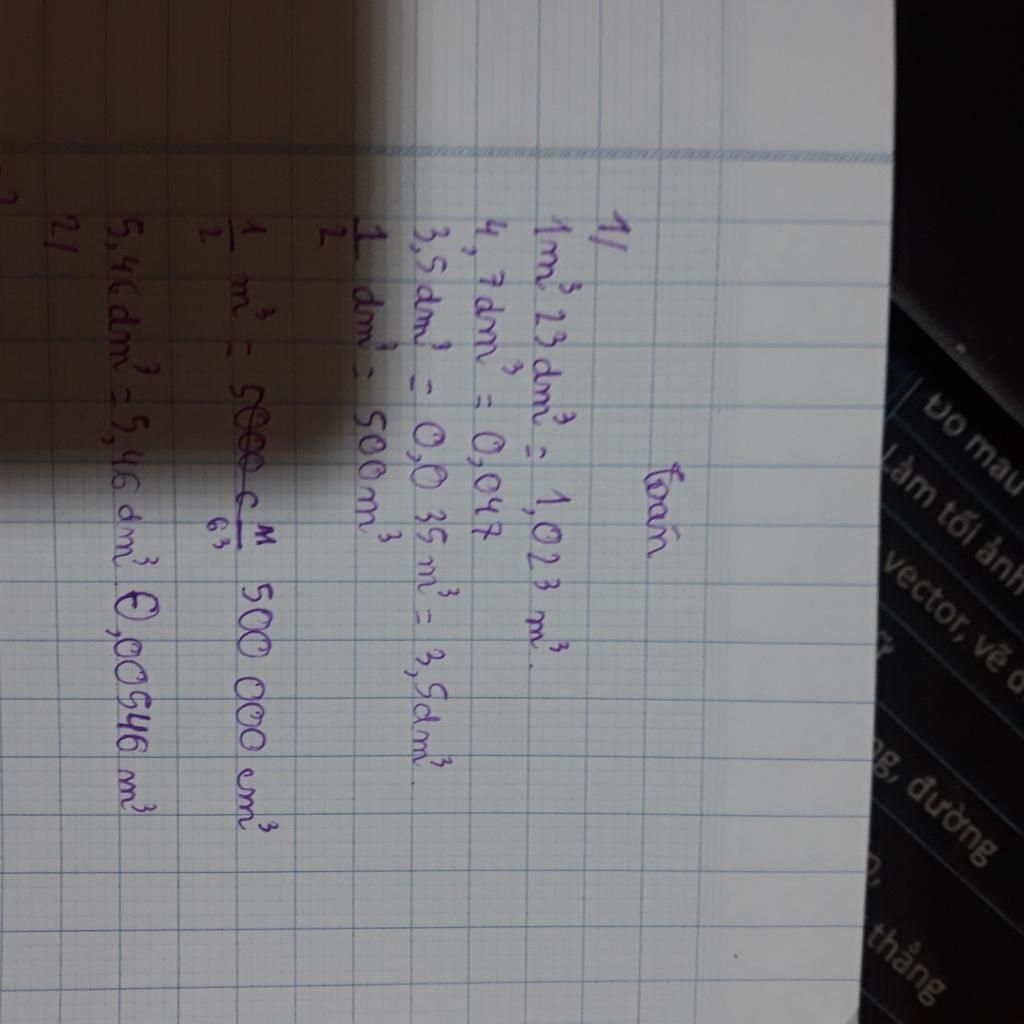 Toán
1/
1m³ 23dm³ = 1,023 m³.
4,7dm³ = 0,047
3,5dm³ = 0,035m³ = 3,5dm³.
1/2 dm³ = 500m³
1/2 m³ = 500 000 cm³
5,46dm³ = 5,46dm³ 0,00546 m³
2/
Đo mau
Làm tối ảnh
vector, vẽ đ
ng, đường
thẳng